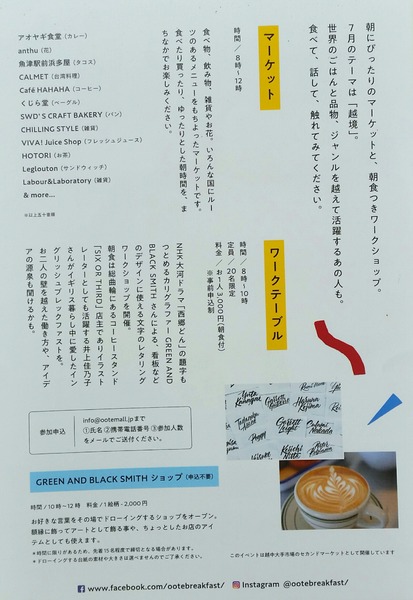 朝にぴったりのマーケットと、朝食つきワークショップ。
7月のテーマは「越境」。
世界のごはんと品物、ジャンルを越えて活躍するあの人も。
食べて、話して、触れてみてください。
マーケット
時間 / 8時〜12時
食べ物、飲み物、雑貨やお花。いろんな国にルー
ツのあるメニューをもちよったマーケットです。
食べたり買ったり、ゆったりとした朝時間を、ま
ちなかでお楽しみください。
アオヤギ食堂（カレー）
anthu（花）
魚津駅前浜多屋（タコス）
CALMET（台湾料理）
Café HAHAHA（コーヒー）
くじら堂（ベーグル）
SWD'S CRAFT BAKERY（パン）
CHILLING STYLE（雑貨）
VIVA! Juice Shop（フレッシュジュース）
HOTORI（お茶）
Leglouton（サンドウィッチ）
Labour&Laboratory（雑貨）
& more...
※以上五十音順
ワークテーブル
時間 / 8時〜10時
定員 / 20名限定
料金 / お1人3,000円（朝食付）
※事前申込制
NHK大河ドラマ「西郷どん」の題字も
つとめるカリグラファー、GREEN AND
BLACK SMITHさんによる、看板など
のデザインに使える文字のレタリング
ワークショップを開催。
朝食は総曲輪にあるコーヒースタンド
「SIX OR THIRD」店主でありイラスト
レーターとしても活躍する井上佳乃子
さんがイギリス暮らし中に愛したイン
グリッシュブレックファストを。
お二人の壁を越えた働き方や、アイデ
アの源泉も聞けるかも。
参加申込
info@ootemall.jpまで
①氏名 ②携帯電話番号 ③参加人数
をメールでご送付ください。
GREEN AND BLACK SMITH ショップ（申込不要）
時間 / 10時〜12時 料金 / 1絵柄 - 2,000円
お好きな言葉をその場でドローイングするショップをオープン。
額縁に飾ってアートとして飾る事や、ちょっとしたお店のアイ
テムとしても使えます。
＊時間に限りがあるため、先着15名程度で締切となる場合があります。
＊ドローイングする台紙の素材や大きさは選べませんのでご了承ください。
Garrett
Leight
Haruna
Kojima
Keiichi
Nitta
このイベントは越中大手市場のセカンドマーケットとして開催しています
www.facebook.com/ootebreakfast/
Instagram @ootebreakfast/